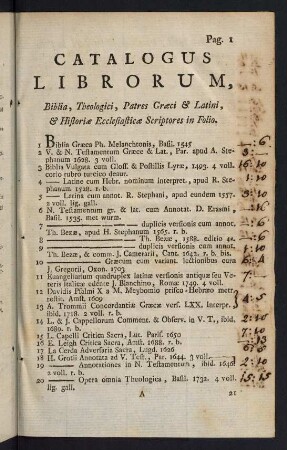 Pag. 1
CATALOGUS
LIBRORUM,
Biblia, Theologici, Patres Græci & Latini,
& Historiæ Ecclesiasticæ Scriptores in Folio.
1 Biblia Græca Ph. Melanchtonis, Basil. 1545
2 V. & N. Testamentum Græce & Lat., Par. apud A. Ste-
phanum 1628. 3 voll.
3 Biblia Vulgata cum Gloss. & Postillis Lyræ, 1493. 4 voll.
corio rubro turcico deaur.
4 — Latine cum Hebr. nominum interpret., apud R. Ste-
phanum 1528. r. b.
5 — Latina cum annot. R. Stephani, apud eundem 1557.
2 voll. lig. gall.
6 N. Testamentum gr. & lat. cum Annotat. D. Erasmi,
Basil. 1535. met wurm.
7 — duplicis versionis cum annot.
Th. Bezæ, apud H. Stephanum 1565. r. b.
8 — Th. Bezæ, 1588. editio 4a.
9 — duplicis versionis cum annot.
Th. Bezæ, & comm. J. Camerarii, Can. 1642. r. b. bis.
10 — Græcum cum variant. lectionibus cura
J. Gregorii, Oxon. 1703
11 Evangeliarium quadruplex latinæ versionis antiquæ seu Ve-
teris Italicæ editore J. Blanchino, Romæ 1749. 4 voll.
12 Davidis Psalmi X a M. Meybomio prisco-Hebræo metro
restit. Amst. 1609
13 A. Trommii Concordantiæ Græcæ vers. LXX. Interpr.
ibid. 1718. 2 voll. r. b.
14 L. & J. Cappellorum Comment. & Observ. in V. T., ibid.
1689. r. b.
15 L. Capelli Critica Sacra, Lut. Paris. 1650
16 E. Leigh Critica Sacra, Amst. 1688. r. b.
17 La Cerda Adversaria Sacra, Lugd. 1626
18 H. Grotii Annotata ad V. Test., Par. 1644. 3 voll.
19 — Annotationes in N. Testamentum, ibid. 1646
2 voll. r. b.
20 — Opera omnia Theologica, Basil. 1732. 4 voll.
lig. gall.
A 21